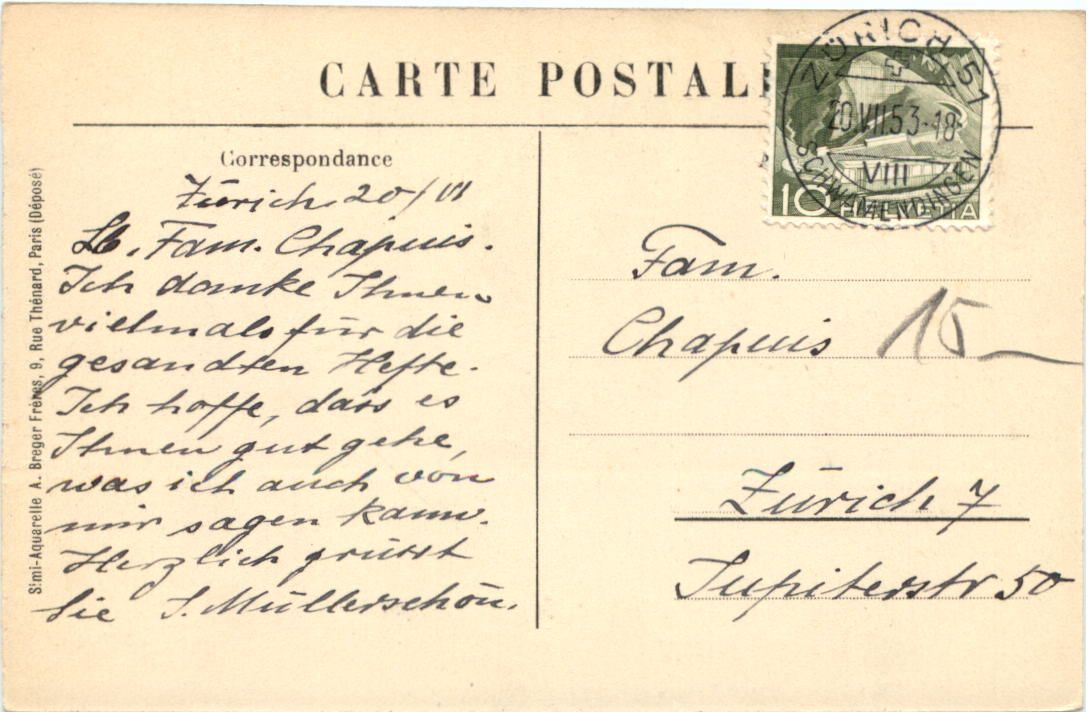 CARTE POSTALE
ZÜRICH 51
20.VII.53-18
VIII
SCHWAMENDINGEN
10 HELVETIA
Correspondance
Zürich 20/VII
Lb. Fam. Chapuis.
Ich danke Ihnen
vielmals für die
gesandten Hefte.
Ich hoffe, dass es
Ihnen gut gehe,
was ich auch von
mir sagen kann.
Herzlich grüsst
Sie S. Müllerschön.
Fam.
Chapuis
15
Zürich 7
Jupiterstr 50
Simi-Aquarelle A. Breger Frères, 9, Rue Thénard, Paris (Déposé)